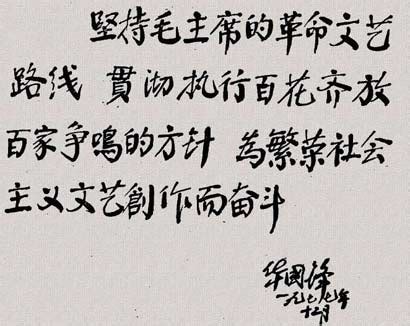 坚持毛主席的革命文艺
路线 貫彻执行百花齐放
百家争鳴的方针 為繁荣社会
主义文艺創作而奋斗
华國锋
一九七七年
十二月